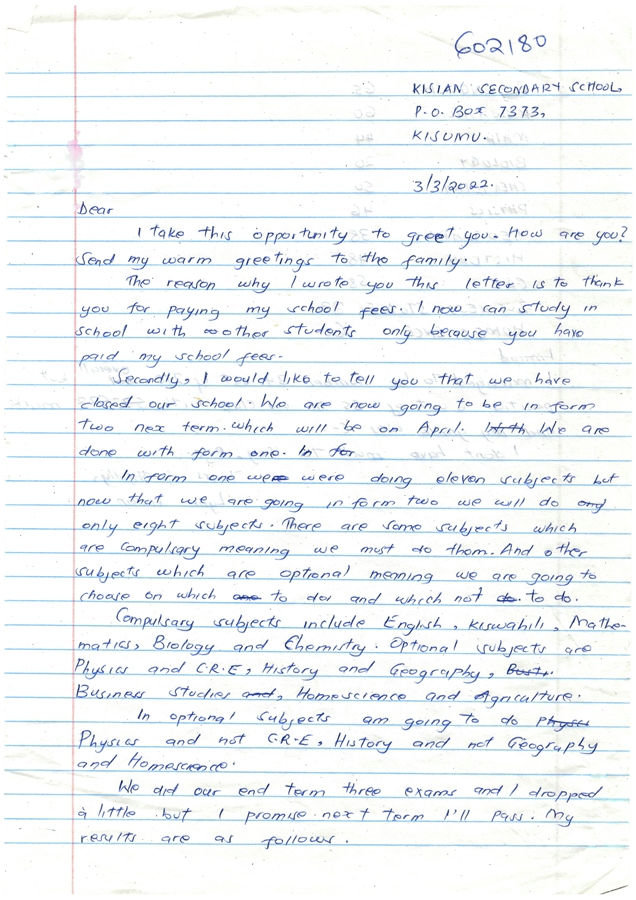 602180
KISIAN SECONDARY SCHOOL,
P.O. BOX 7373,
KISUMU.
3/3/2022.
Dear
I take this opportunity to greet you. How are you?
Send my warm greetings to the family.
The reason why I wrote you this letter is to thank
you for paying my school fees. I now can study in
school with other students only because you have
paid my school fees.
Secondly, I would like to tell you that we have
closed our school. We are now going to be in form
two nex term. which will be on April. We are
done with form one. In for
In form one we were doing eleven subjects but
now that we are going in form two we will do
only eight subjects. There are some subjects which
are compulsary meaning we must do them. And other
subjects which are optional meaning we are going to
choose on which to do and which not to do.
Compulsary subjects include English, Kiswahili, Mathe-
matics, Biology and Chemistry. Optional subjects are
Physics and C.R.E, History and Geography,
Business studies, Homescience and Agriculture.
In optional subjects am going to do
Physics and not C.R.E, History and not Geography
and Homescience.
We did our end term three exams and I dropped
a little but I promise next term I'll pass. My
results are as follows.